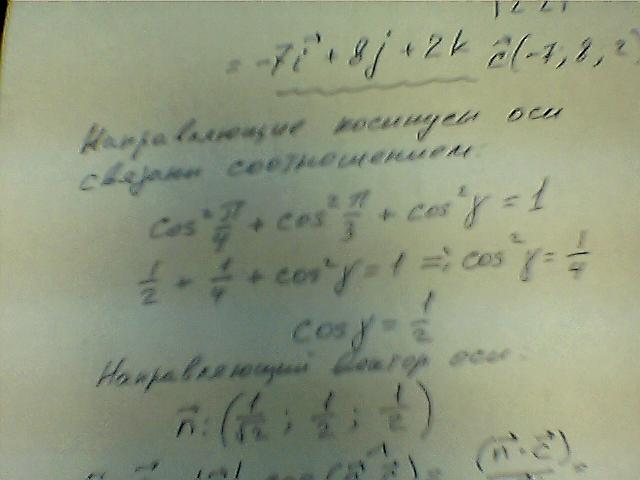 = -7i⃗ + 8j + 2k c⃗(-7, 8, 2)
Направляющие косинусы оси
связаны соотношением:
cos² π/4 + cos² π/3 + cos² γ = 1
1/2 + 1/4 + cos² γ = 1 => cos² γ = 1/4
cos γ = 1/2
Направляющий вектор оси:
n⃗: (1/√2; 1/2; 1/2)
(n⃗·c⃗)